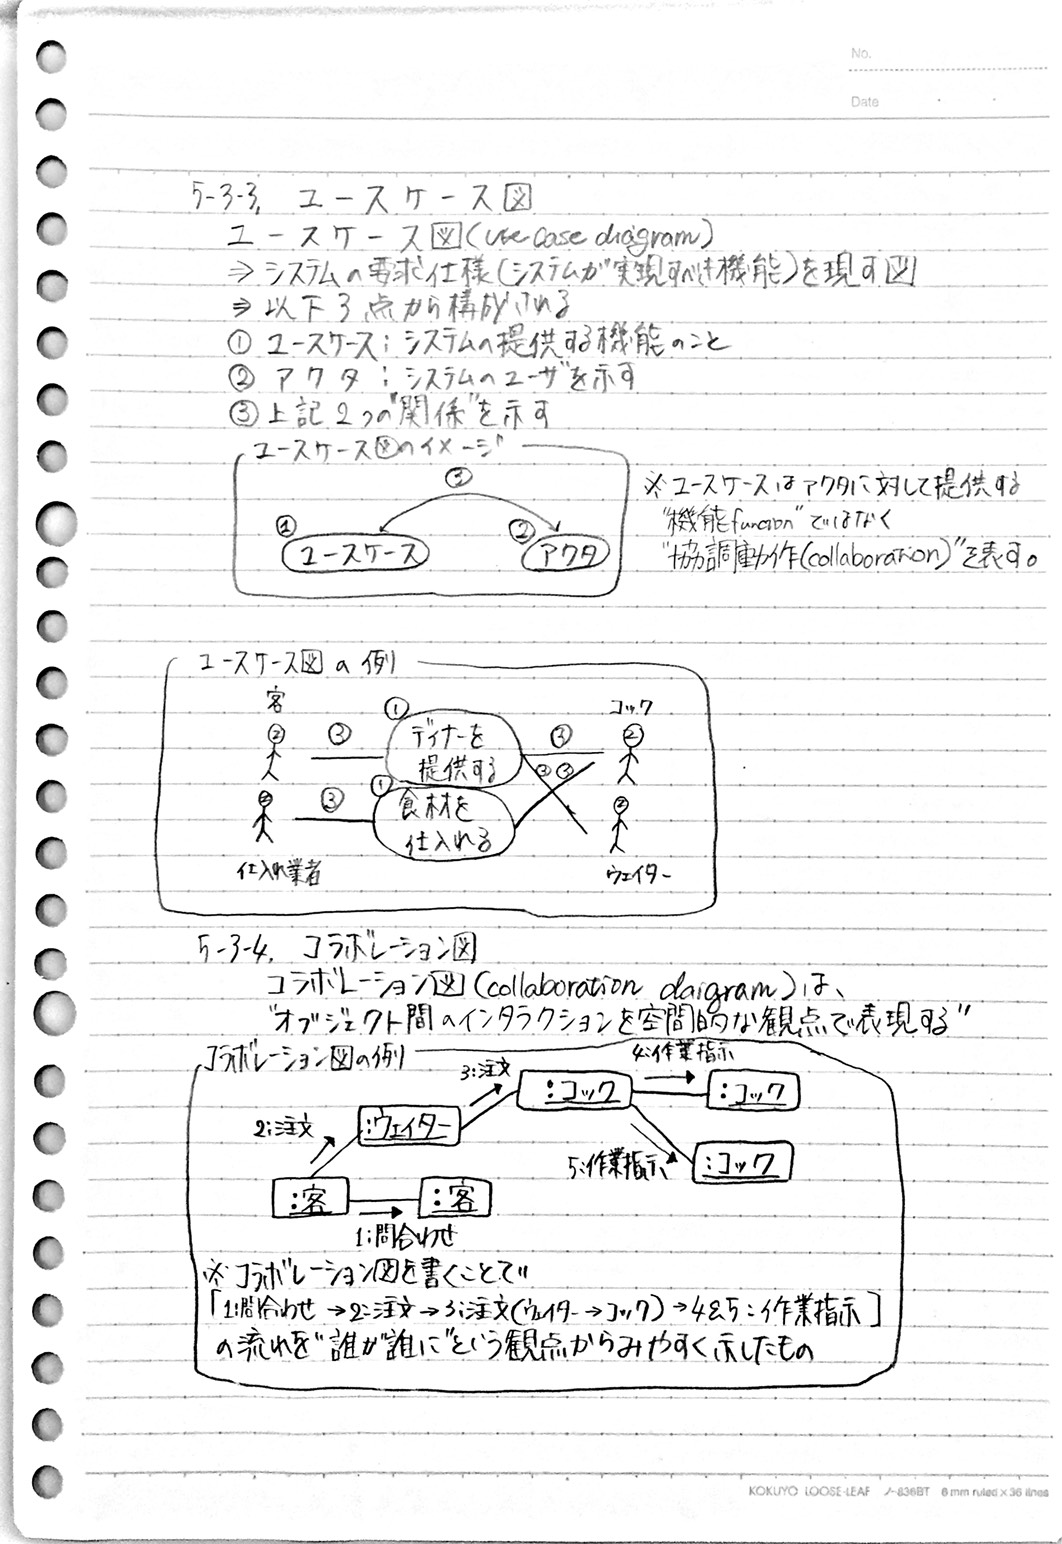 No.
Date
5-3-3. ユースケース図
ユースケース図(use case diagram)
⇒システムの要求仕様(システムが実現すべき機能)を現す図
⇒以下3点から構成される
①ユースケース:システムの提供する機能のこと
②アクタ:システムのユーザを示す
③上記2つの"関係"を示す
ユースケース図のイメージ
③
① ②
ユースケース アクタ
※ユースケースはアクタに対して提供する
"機能funcion"ではなく
"協調動作(collaboration)"を表す。
ユースケース図の例
客 コック
① ディナーを
提供する
② ③ ③ ②
③ ③
① 食材を
仕入れる
② ③ ②
仕入れ業者 ウェイター
5-3-4. コラボレーション図
コラボレーション図(collaboration daigram)は、
"オブジェクト間のインタラクションを空間的な観点で表現する"
コラボレーション図の例
4:作業指示
3:注文
:コック :コック
2:注文 :ウェイター
5:作業指示 :コック
:客 :客
1:問合わせ
※コラボレーション図を書くことで
「1:問合わせ→2:注文→3:注文(ウェイター→コック)→4&5:作業指示」
の流れを"誰が誰に"という観点からみやすく示したもの
KOKUYO LOOSE-LEAF ノ-836BT 6mm ruled×36 lines